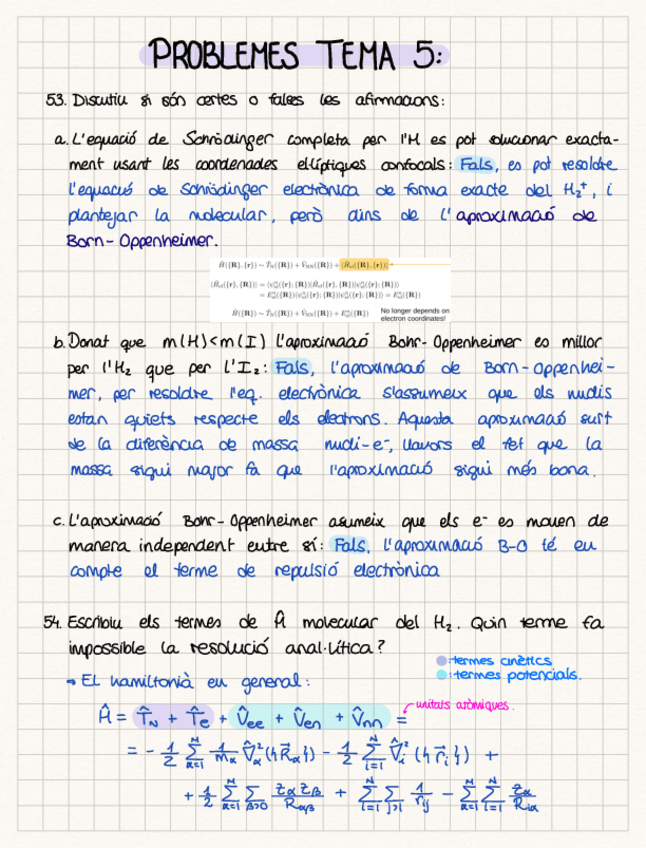 PROBLEMES TEMA 5:
53. Discutiu si són certes o falses les afirmacions:
a. L'equació de Schrödinger completa per l'H es pot solucionar exacta-
ment usant les coordenades el·líptiques confocals: Fals, es pot resoldre
l'equació de Schrödinger electrònica de forma exacte del H₂⁺, i
plantejar la molecular, però dins de l'aproximació de
Born-Oppenheimer.
Ĥ({R},{r}) ~ T̂N({R}) + V̂NN({R}) + ⟨Ĥel({R},{r})⟩
No longer depends on
electron coordinates!
b. Donat que m(H)<m(I) l'aproximació Bohr-Oppenheimer es millor
per l'H₂ que per l'I₂: Fals, l'aproximació de Born-Oppenhei-
mer, per resoldre l'eq. electrònica s'assumeix que els nuclis
estan quiets respecte els electrons. Aquesta aproximació surt
de la diferència de massa nucli-e⁻, llavors el fet que la
massa sigui major fa que l'aproximació sigui més bona.
c. L'aproximació Bohr-Oppenheimer asumeix que els e⁻ es mouen de
manera independent entre sí: Fals, l'aproximació B-O té en
compte el terme de repulsió electrònica
54. Escribiu els termes de Ĥ molecular del H₂. Quin terme fa
impossible la resolució anal·lítica?
:termes cinètics
:termes potencials.
→ El hamiltonià en general:
unitats atòmiques.
Ĥ = T̂N + T̂e + V̂ee + V̂en + V̂nn =
= - 1/2 Σ(α=1)^N 1/mα ∇̂²α ({R⃗α}) - 1/2 Σ(i=1)^N ∇̂²i ({r⃗i}) +
+ 1/2 Σ(α=1)^N Σ(β>0) ZαZβ/Rαβ + Σ(i=1)^N Σ(j>i) 1/rij - Σ(α=1)^N Σ(i=1)^N Zα/Riα